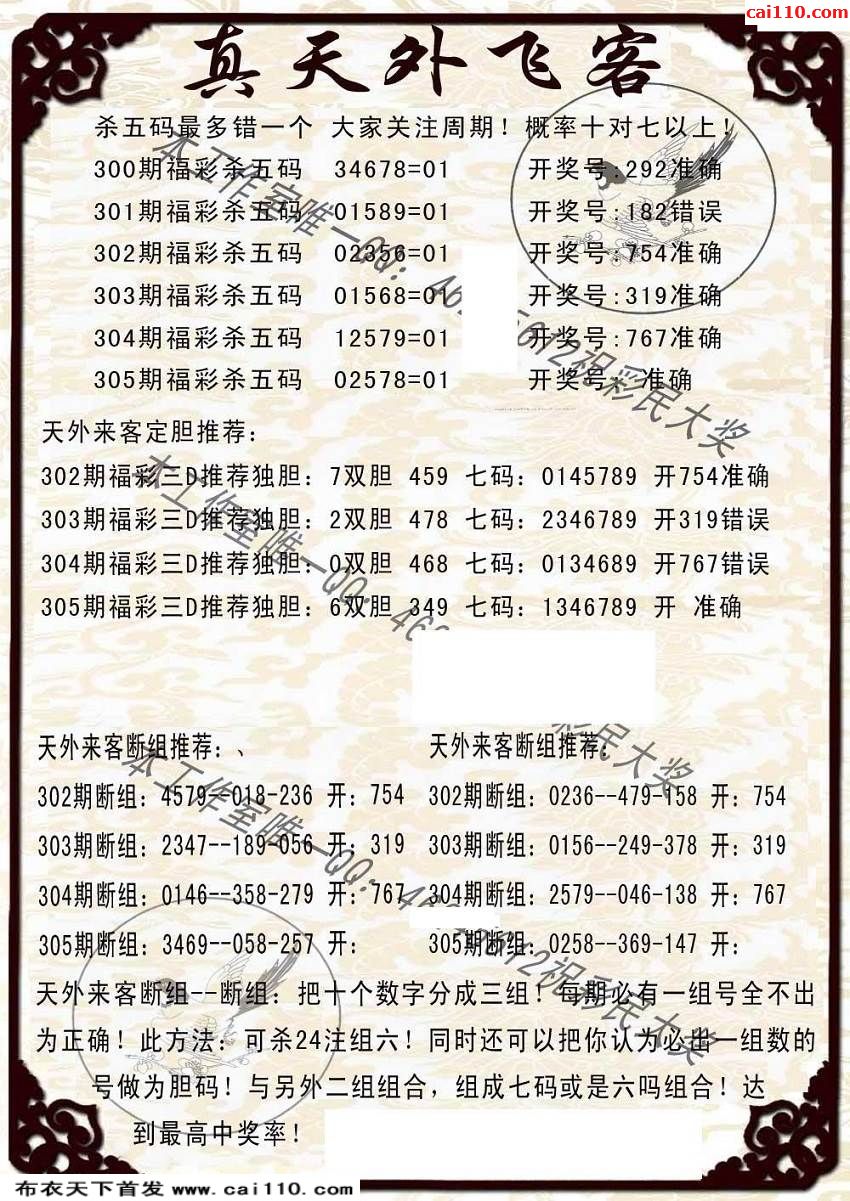 cai110.com
真天外飞客
杀五码最多错一个 大家关注周期！概率十对七以上！
300期福彩杀五码 34678=01 开奖号:292准确
301期福彩杀五码 01589=01 开奖号:182错误
302期福彩杀五码 02356=01 开奖号:754准确
303期福彩杀五码 01568=01 开奖号:319准确
304期福彩杀五码 12579=01 开奖号:767准确
305期福彩杀五码 02578=01 开奖号: 准确
天外来客定胆推荐：
302期福彩三D推荐独胆：7双胆 459 七码：0145789 开754准确
303期福彩三D推荐独胆：2双胆 478 七码：2346789 开319错误
304期福彩三D推荐独胆：0双胆 468 七码：0134689 开767错误
305期福彩三D推荐独胆：6双胆 349 七码：1346789 开 准确
天外来客断组推荐：、 天外来客断组推荐：
302期断组：4579--018-236 开：754 302期断组：0236--479-158 开：754
303期断组：2347--189-056 开：319 303期断组：0156--249-378 开：319
304期断组：0146--358-279 开：767 304期断组：2579--046-138 开：767
305期断组：3469--058-257 开： 305期断组：0258--369-147 开：
天外来客断组--断组：把十个数字分成三组！每期必有一组号全不出
为正确！此方法：可杀24注组六！同时还可以把你认为必出一组数的
号做为胆码！与另外二组组合，组成七码或是六吗组合！达
到最高中奖率！
本工作室唯一QQ：
祝彩民大奖
本工作室唯一QQ：
彩民大奖
本工作室唯一QQ：
祝彩民大奖
布衣天下首发 www.cai110.com